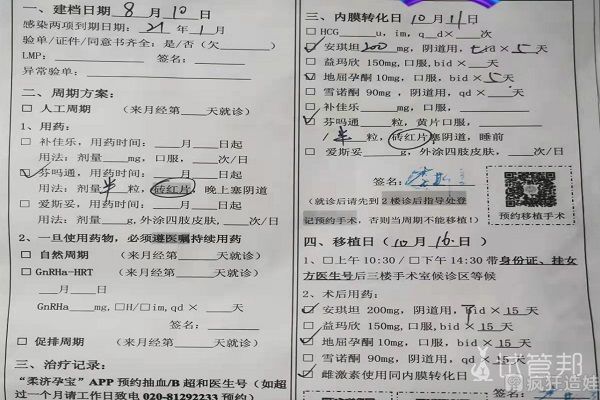 一、建档日期 8 月 10 日
感染两项到期日期: 21 年 1 月
验单/证件/同意书齐全: 是/否（欠
LMP: 签名:
异常验单:
二、周期方案:
□ 人工周期 （来月经第 天就诊）
1、用药:
□ 补佳乐，用药时间: 月 日起
用法: 剂量 mg，口服， 次/日
芬吗通，用药时间: 月 日起
用法: 剂量 半 粒，砖红片 晚上塞阴道
□ 爱斯妥，用药时间: 月 日起
用法: 剂量 g,外涂四肢皮肤， 次/日
2、一旦使用药物，必须遵医嘱持续用药
□ 自然周期 （来月经第 天就诊）
□ GnRHa-HRT （来月经第 天就诊）
月 日
GnRHa mg,□H/□im,qd × 天
签名:
□ 促排周期 （来月经第 天就诊）
三、治疗记录:
“柔济孕宝”APP 预约抽血/B 超和医生号（如超
过一个月请工作日致电 020-81292233 预约）
三、内膜转化日 10 月 11 日
□ HCG u, im, q d× 次
安琪坦 200 mg, 阴道用, tid × 5 天
□ 益玛欣 150mg, 口服, bid × 天
□ 地屈孕酮 10mg, 口服, bid × 5 天
□ 雪诺酮 90mg , 阴道用, qd × 天
□ 补佳乐 mg, 口服,
□ 芬吗通 粒, 黄片口服,
/ 半 粒, 砖红片塞阴道, 睡前
□ 爱斯妥 g, 外涂四肢皮肤, 次/日
签名:
（就诊后请先到 2 楼诊后指导处登
记预约手术，否则当周期不能移植！）
预约移植手术
四、移植日（10 月 16 日）
1、□上午 10:30 / □下午 14:30 带身份证、挂女
方医生号后三楼手术室候诊区等候
2、术后用药:
□ 安琪坦 200mg, 阴道用, bid × 15 天
□ 益玛欣 150mg, 口服, bid × 15 天
□ 地屈孕酮 10mg, 口服, bid × 15 天
□ 雪诺酮 90mg, 阴道用, qd × 15 天
□ 雌激素使用同内膜转化日
试管邦
疯狂造娃